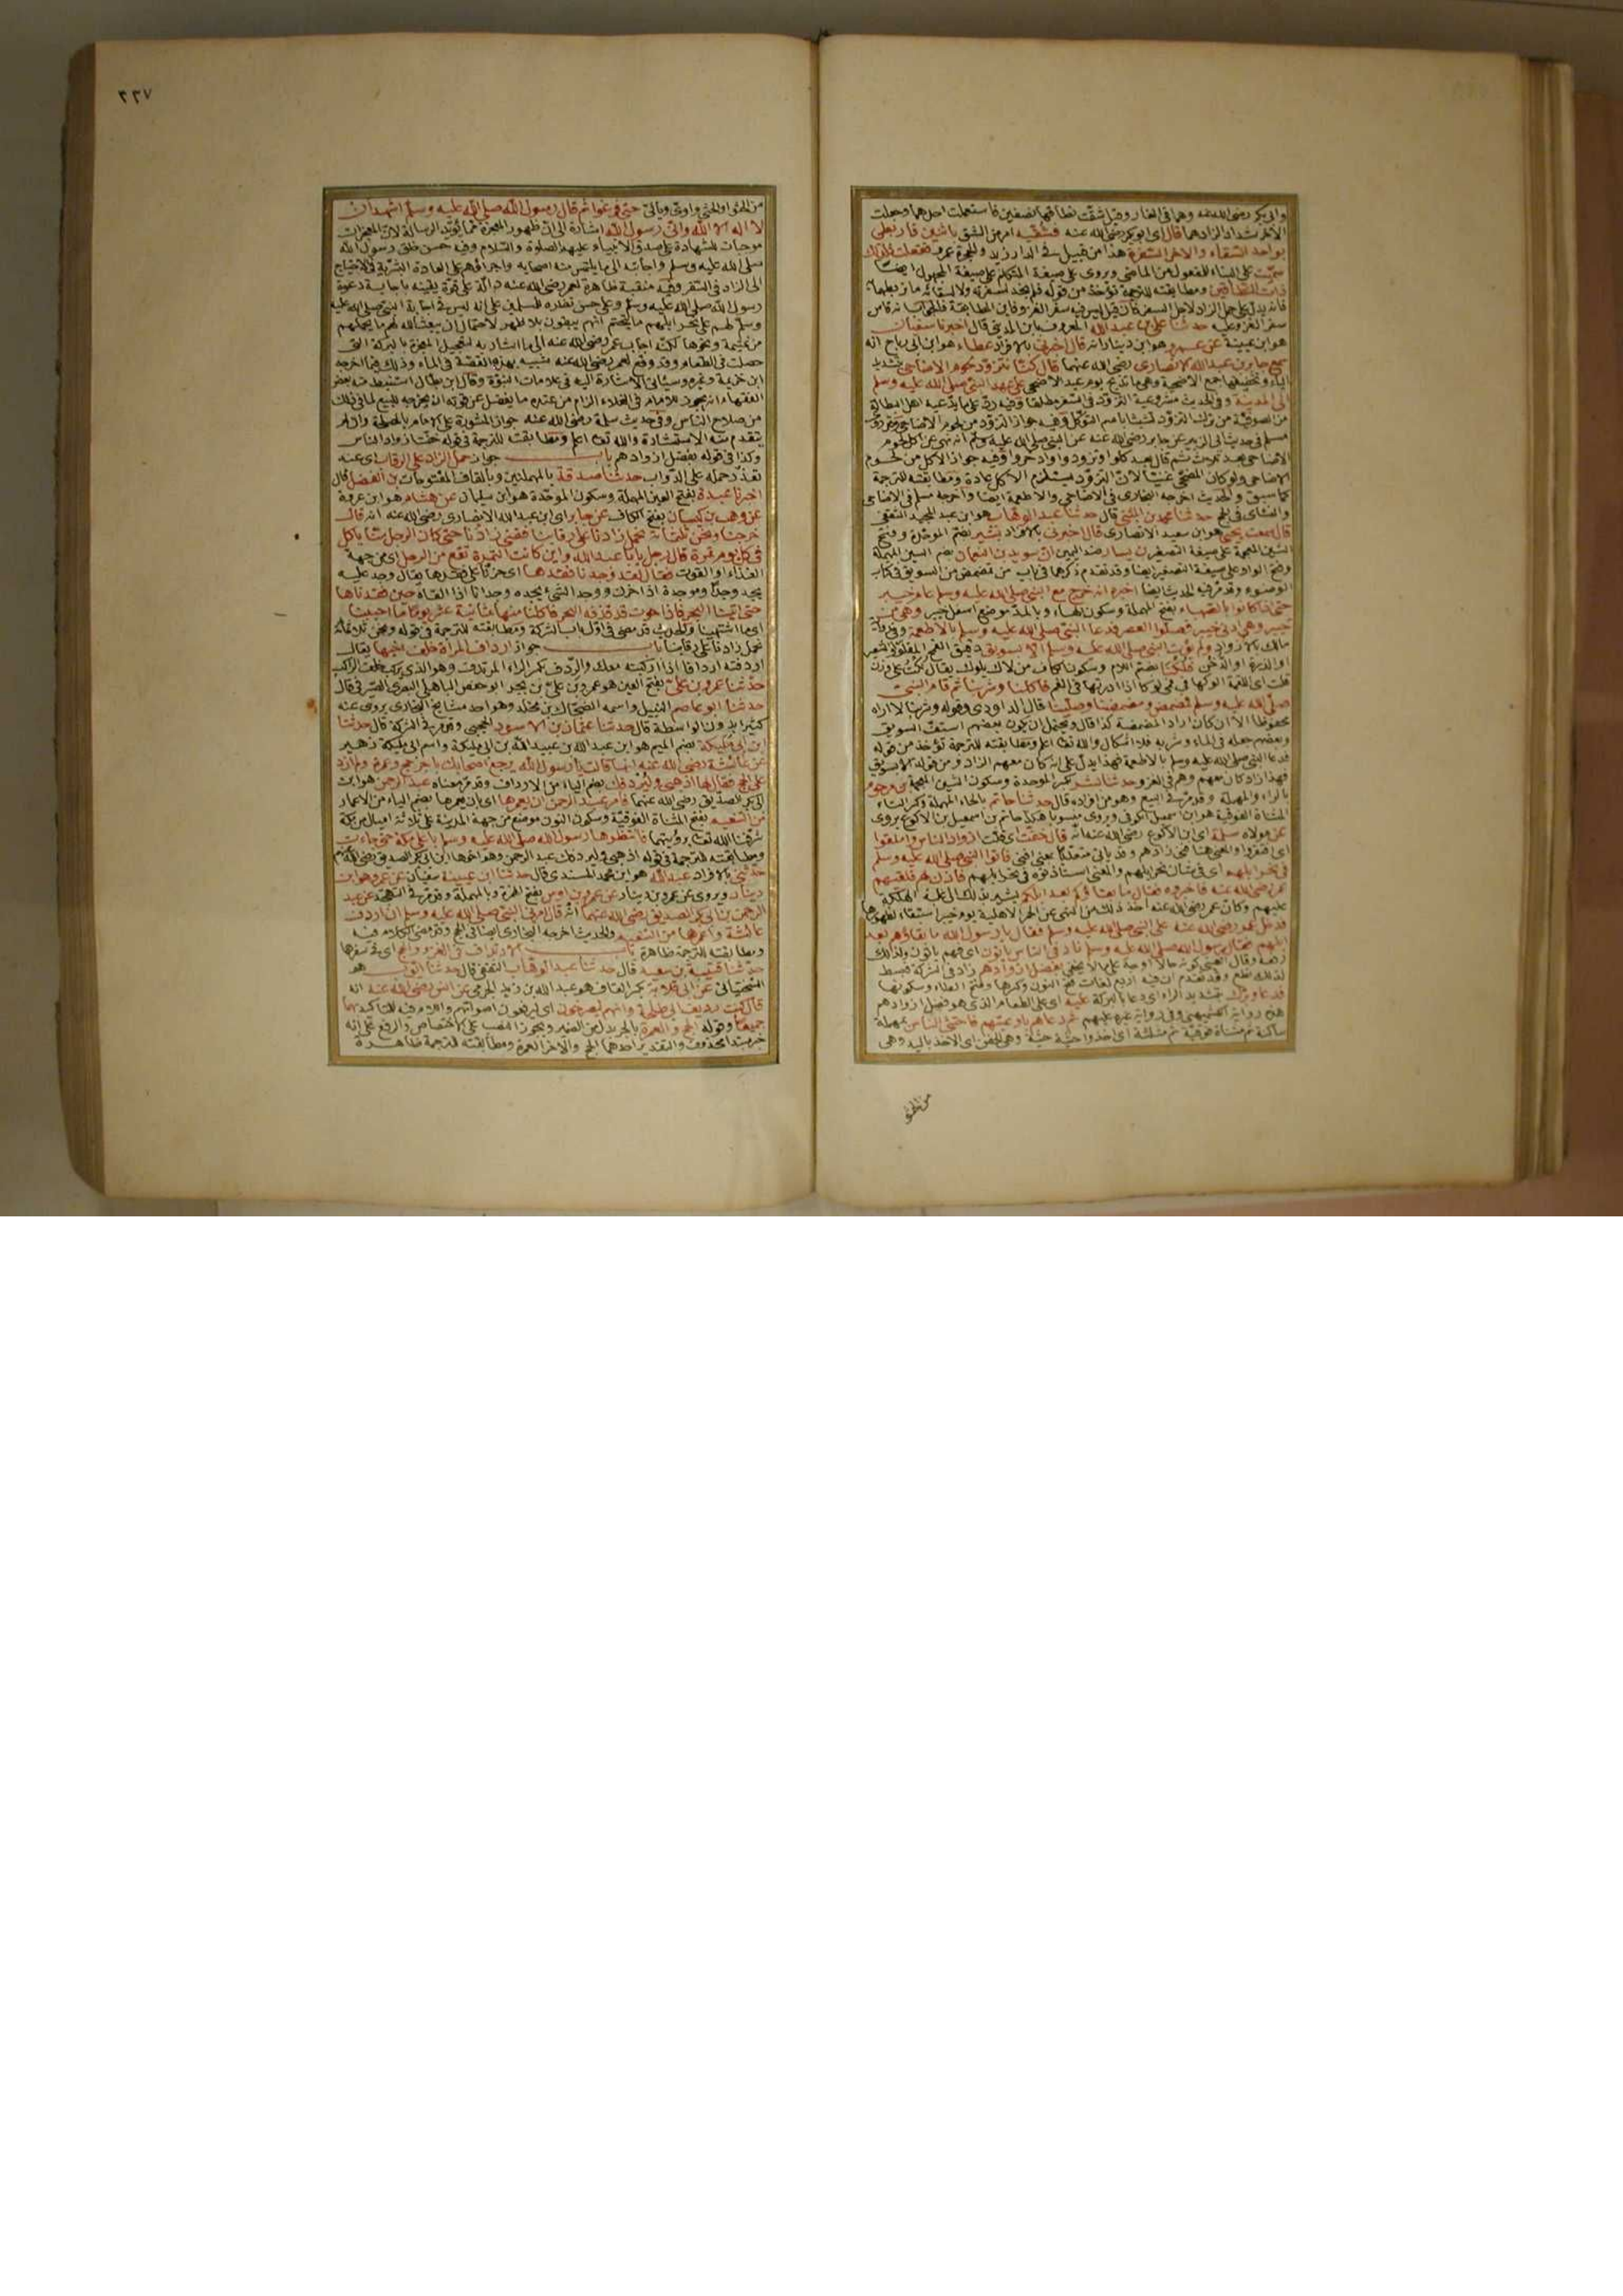 وابى بكر رضى الله عنه وهما فى الغار وقيل شقت نطاقها نصفين فاستعملت احدهما وجعلت
الآخر شدادا لزادهما قال اى ابو بكر رضى الله عنه فشقيه امر من الشق باثنين فاربطى
بواحد السقاء والآخر السفرة هذا من قبيل فى الدار زيد والحجرة عمرو ففعلت فلذلك
سميت على البناء للمفعول من الماضى ويروى على صيغة المتكلم على صيغة المجهول ايضا
ذات النطاقين ومطابقته للترجمة تؤخذ من قوله فلم نجد لسفرته ولا لسقائه ما نربطهما به
فانه يدل على حمل الزاد لاجل السفر فان قيل ليس فيه سفر الغزو فاين المطابقة فالجواب انه قاس
سفر الغزو عليه حدثنا على بن عبد الله المعروف بابن المدينى قال اخبرنا سفيان
هو ابن عيينة عن عمرو هو ابن دينار انه قال اخبرنى بالافراد عطاء هو ابن ابى رباح انه
سمع جابر بن عبد الله الانصارى رضى الله عنهما قال كنا نتزود لحوم الاضاحى بتشديد
الياء وتخفيفها جمع الاضحية وهى ما تذبح يوم عيد الاضحى على عهد النبى صلى الله عليه وسلم
الى المدينة وفى الحديث مشروعية التزود فى السفر مطلقا وفيه رد على ما يدعيه اهل البطالة
من الصوفية من ترك التزود تشبثا باسم التوكل وفيه جواز التزود من لحوم الاضاحى
مسلم فى حديث ابى الزبير عن جابر رضى الله عنه عن النبى صلى الله عليه وسلم انه نهى عن اكل لحوم
الاضاحى بعد ثلاث ثم قال بعد كلوا وتزودوا وادخروا وفيه جواز الاكل من لحوم
الاضاحى ولو كان المضحى غنيا لان التزود يستلزم الاكل عادة ومطابقته للترجمة
كما سبق والحديث اخرجه البخارى فى الاضاحى والاطعمة ايضا واخرجه مسلم فى الاضاحى
والنسائى فى الحج حدثنا محمد بن المثنى قال حدثنا عبد الوهاب هو ابن عبد المجيد الثقفى
قال سمعت يحيى هو ابن سعيد الانصارى قال اخبرنى بالافراد بشير بضم الموحدة وفتح
الشين المعجمة على صيغة التصغير بن يسار ضد اليمين ان سويد بن النعمان بضم السين المهملة
وفتح الواو على صيغة التصغير ايضا وقد تقدم ذكرهما فى باب من تمضمض من السويق فى كتاب
الوضوء وقد مر فيه الحديث ايضا اخبره انه خرج مع النبى صلى الله عليه وسلم عام خيبر
حتى اذا كانوا بالصهباء بفتح المهملة وسكون الهاء وبالمد موضع اسفل خيبر وهى من
خيبر وهى ادنى خيبر فصلوا العصر فدعا النبى صلى الله عليه وسلم بالاطعمة وفى رواية
مالك بالازواد ولم يؤت النبى صلى الله عليه وسلم الا بسويق دقيق القمح المقلو او الشعير
او الذرة او الدخن فلكنا بضم اللام وسكون الكاف من لاك يلوك يقال لكت على وزن
قلت اى اللقمة الوكها فى فمى لوكا اذا ادرتها فى الفم فاكلنا وشربنا ثم قام النبى
صلى الله عليه وسلم فمضمض ومضمضنا وصلينا قال الداودى وقوله وشربنا لا اراه
محفوظا الا ان كان اراد المضمضة كذا قال ويحتمل ان يكون بعضهم استف السويق
وبعضهم جعله فى الماء وشربه فلا اشكال والله تعالى اعلم ومطابقته للترجمة تؤخذ من قوله
فدعا النبى صلى الله عليه وسلم بالاطعمة فهذا يدل على انه كان معهم الزاد ومن قوله الا بسويق
فهذا زاد كان معهم وهم فى الغزو حدثنا بشر بكسر الموحدة وسكون الشين المعجمة بن مرحوم
بالراء والمهملة وقد مر فى البيع وهو من افراده قال حدثنا حاتم بالحاء المهملة وكسر التاء
المثناة الفوقية هو ابن اسمعيل الكوفى ويروى منسوبا هكذا حاتم بن اسمعيل بن الاكوع يروى
عن مولاه سلمة اى ابن الاكوع رضى الله عنه انه قال خفت اى قلت ازواد الناس واملقوا
اى افتقروا والمعنى هنا فنى زادهم وقد ياتى متعديا بمعنى افنى فاتوا النبى صلى الله عليه وسلم
فى نحر ابلهم اى فى شان نحر ابلهم والمعنى استأذنوه فى نحر ابلهم فاذن لهم فلقيهم
عمر رضى الله عنه فاخبروه فقال ما بقاؤكم بعد ابلكم يشير بذلك الى غلبة الهلكة
عليهم وكان عمر رضى الله عنه اخذ ذلك من النهى عن الحمر الاهلية يوم خيبر استبقاء لظهورها
فدخل عمر رضى الله عنه على النبى صلى الله عليه وسلم فقال يا رسول الله ما بقاؤهم بعد
ابلهم فقال رسول الله صلى الله عليه وسلم ناد فى الناس ياتون اى فهم ياتون ولذلك
رفعه وقال العينى كونه حالا اوجه على ما لا يخفى بفضل ازوادهم زاد فى الشركة فبسط
لذلك نطع وقد تقدم ان فيه اربع لغات فتح النون وكسرها وفتح الطاء وسكونها
فدعا وبرك بتشديد الراء اى دعا بالبركة عليه اى على الطعام الذى هو فضل ازوادهم
هذه رواية الكشميهنى وفى رواية غيره عليهم ثم دعاهم باوعيتهم فاحتثى الناس بمهملة
ساكنة ثم مثناة فوقية ثم مثلثة اى اخذوا حثية حثية وهى الحفن اى الاخذ باليد وهى
من الحثو
٣٣٧
من الحثو او الحثى واوى ويائى حتى فرغوا ثم قال رسول الله صلى الله عليه وسلم اشهد ان
لا اله الا الله وانى رسول الله اشارة الى ان ظهور المعجزة مما يؤيد الرسالة لان المعجزات
موجبات للشهادة على صدق الانبياء عليهم الصلوة والسلام وفيه حسن خلق رسول الله
صلى الله عليه وسلم واجابته الى ما يلتمس منه اصحابه واجراؤهم على العادة البشرية فى الاحتياج
الى الزاد فى السفر وفيه منقبة ظاهرة لعمر رضى الله عنه دالة على قوة يقينه باجابة دعوة
رسول الله صلى الله عليه وسلم وعلى حسن نظره للمسلمين على انه ليس فى اجابة النبى صلى الله عليه
وسلم لهم على نحر ابلهم ما يتحتم انهم يبقون بلا ظهر لاحتمال ان يبعث الله لهم ما يحملهم
من غنيمة ونحوها لكنه اجاب عمر رضى الله عنه الى ما اشار به لتعجيل المعجزة بالبركة التى
حصلت فى الطعام وقد وقع لعمر رضى الله عنه شبيه بهذه القصة فى الماء وذلك فيما اخرجه
ابن خزيمة وغيره وسيأتى الاشارة اليه فى علامات النبوة وقال ابن بطال استنبط منه بعض
الفقهاء انه يجوز للامام فى الغلاء الزام من عنده ما يفضل عن قوته ان يخرجه للبيع لما فى ذلك
من صلاح الناس وفى حديث سلمة رضى الله عنه جواز المشورة على الامام بالمصلحة وان لم
يتقدم منه الاستشارة والله تعالى اعلم ومطابقته للترجمة فى قوله خفت ازواد الناس
وكذا فى قوله بفضل ازوادهم باب جواز حمل الزاد على الرقاب اى عند
تعذر حمله على الدواب حدثنا صدقة بالمهملتين وبالقاف المفتوحات بن الفضل قال
اخبرنا عبدة بفتح العين المهملة وسكون الموحدة هو ابن سليمان عن هشام هو ابن عروة
عن وهب بن كيسان بفتح الكاف عن جابر اى ابن عبد الله الانصارى رضى الله عنه انه قال
خرجنا ونحن ثلثمائة نحمل زادنا على رقابنا ففنى زادنا حتى كان الرجل منا يأكل
فى كل يوم تمرة قال رجل يا ابا عبد الله واين كانت التمرة تقع من الرجل اى من جهة
الغذاء او القوت فقال لقد وجدنا فقدها اى حزنا على فقدها يقال وجد عليه
يجد وجدا وموجدة اذا حزن ووجد الشئ يجده وجدانا اذا القاه حين فقدناها
حتى اتينا البحر فاذا حوت قد قذفه البحر فاكلنا منها ثمانية عشر يوما ما احببنا
اى ما اشتهينا والحديث قد مضى فى اول باب الشركة ومطابقته للترجمة فى قوله ونحن ثلاثمائة
نحمل زادنا على رقابنا باب جواز ارداف المرأة خلف اخيها يقال
اردفته اردافا اذا اركبته معك والردف بكسر الراء المرتدف وهو الذى يركب خلف الراكب
حدثنا عمرو بن على بفتح العين هو عمرو بن على بن بحر ابو حفص الباهلى البصرى الصيرفى قال
حدثنا ابو عاصم النبيل واسمه الضحاك بن مخلد وهو احد مشايخ البخارى يروى عنه
كثيرا بدون الواسطة قال حدثنا عثمان بن الاسود الجمحى وقد مر فى الشركة قال حدثنا
ابن ابى مليكة بضم الميم هو ابن عبد الله بن عبيد الله بن ابى مليكة واسم ابى مليكة زهير
عن عائشة رضى الله عنه انها قالت يا رسول الله يرجع اصحابك باجر حج وعمرة ولم ازد
على الحج فقال لها اذهبى وليردفك بضم الياء من الارداف وقد مر معناه عبد الرحمن هو ابن
ابى بكر الصديق رضى الله عنهما فامر عبد الرحمن ان يعمرها اى بان يعمرها بضم الياء من الاعمار
من التنعيم بفتح المثناة الفوقية وسكون النون موضع من جهة المدينة على ثلاثة اميال من مكة
شرفنا الله تعالى برؤيتها فانتظرها رسول الله صلى الله عليه وسلم باعلى مكة حتى جاءت
ومطابقته للترجمة فى قوله اذهبى وليردفك عبد الرحمن وهو اخوها ابن ابى بكر الصديق رضى الله عنهم
حدثنى بالافراد عبد الله هو ابن محمد المسندى قال حدثنا ابن عيينة سفيان عن عمرو هو ابن
دينار ويروى عن عمرو بن دينار عن عمرو بن اوس بفتح الهمزة وبالمهملة وقد مر فى التهجد عن عبد
الرحمن بن ابى بكر الصديق رضى الله عنهما انه قال امرنى النبى صلى الله عليه وسلم ان اردف
عائشة واعمرها من التنعيم والحديث اخرجه البخارى ايضا فى الحج وقد مضى الكلام فيه
ومطابقته للترجمة ظاهرة باب الارتداف فى الغزو والحج اى فى سفرها
حدثنا قتيبة بن سعيد قال حدثنا عبد الوهاب الثقفى قال حدثنا ايوب هو
السختيانى عن ابى قلابة بكسر القاف هو عبد الله بن زيد الجرمى عن انس رضى الله عنه انه
قال كنت رديف ابى طلحة وانهم ليصرخون اى ليرفعون اصواتهم واللام فيه للتاكيد بهما
جميعا وقوله الحج والعمرة بالجر بدل من الضمير ويجوز النصب على الاختصاص والرفع على انه
خبر مبتدا محذوف والتقدير احدهما الحج والآخر العمرة ومطابقته للترجمة ظاهرة